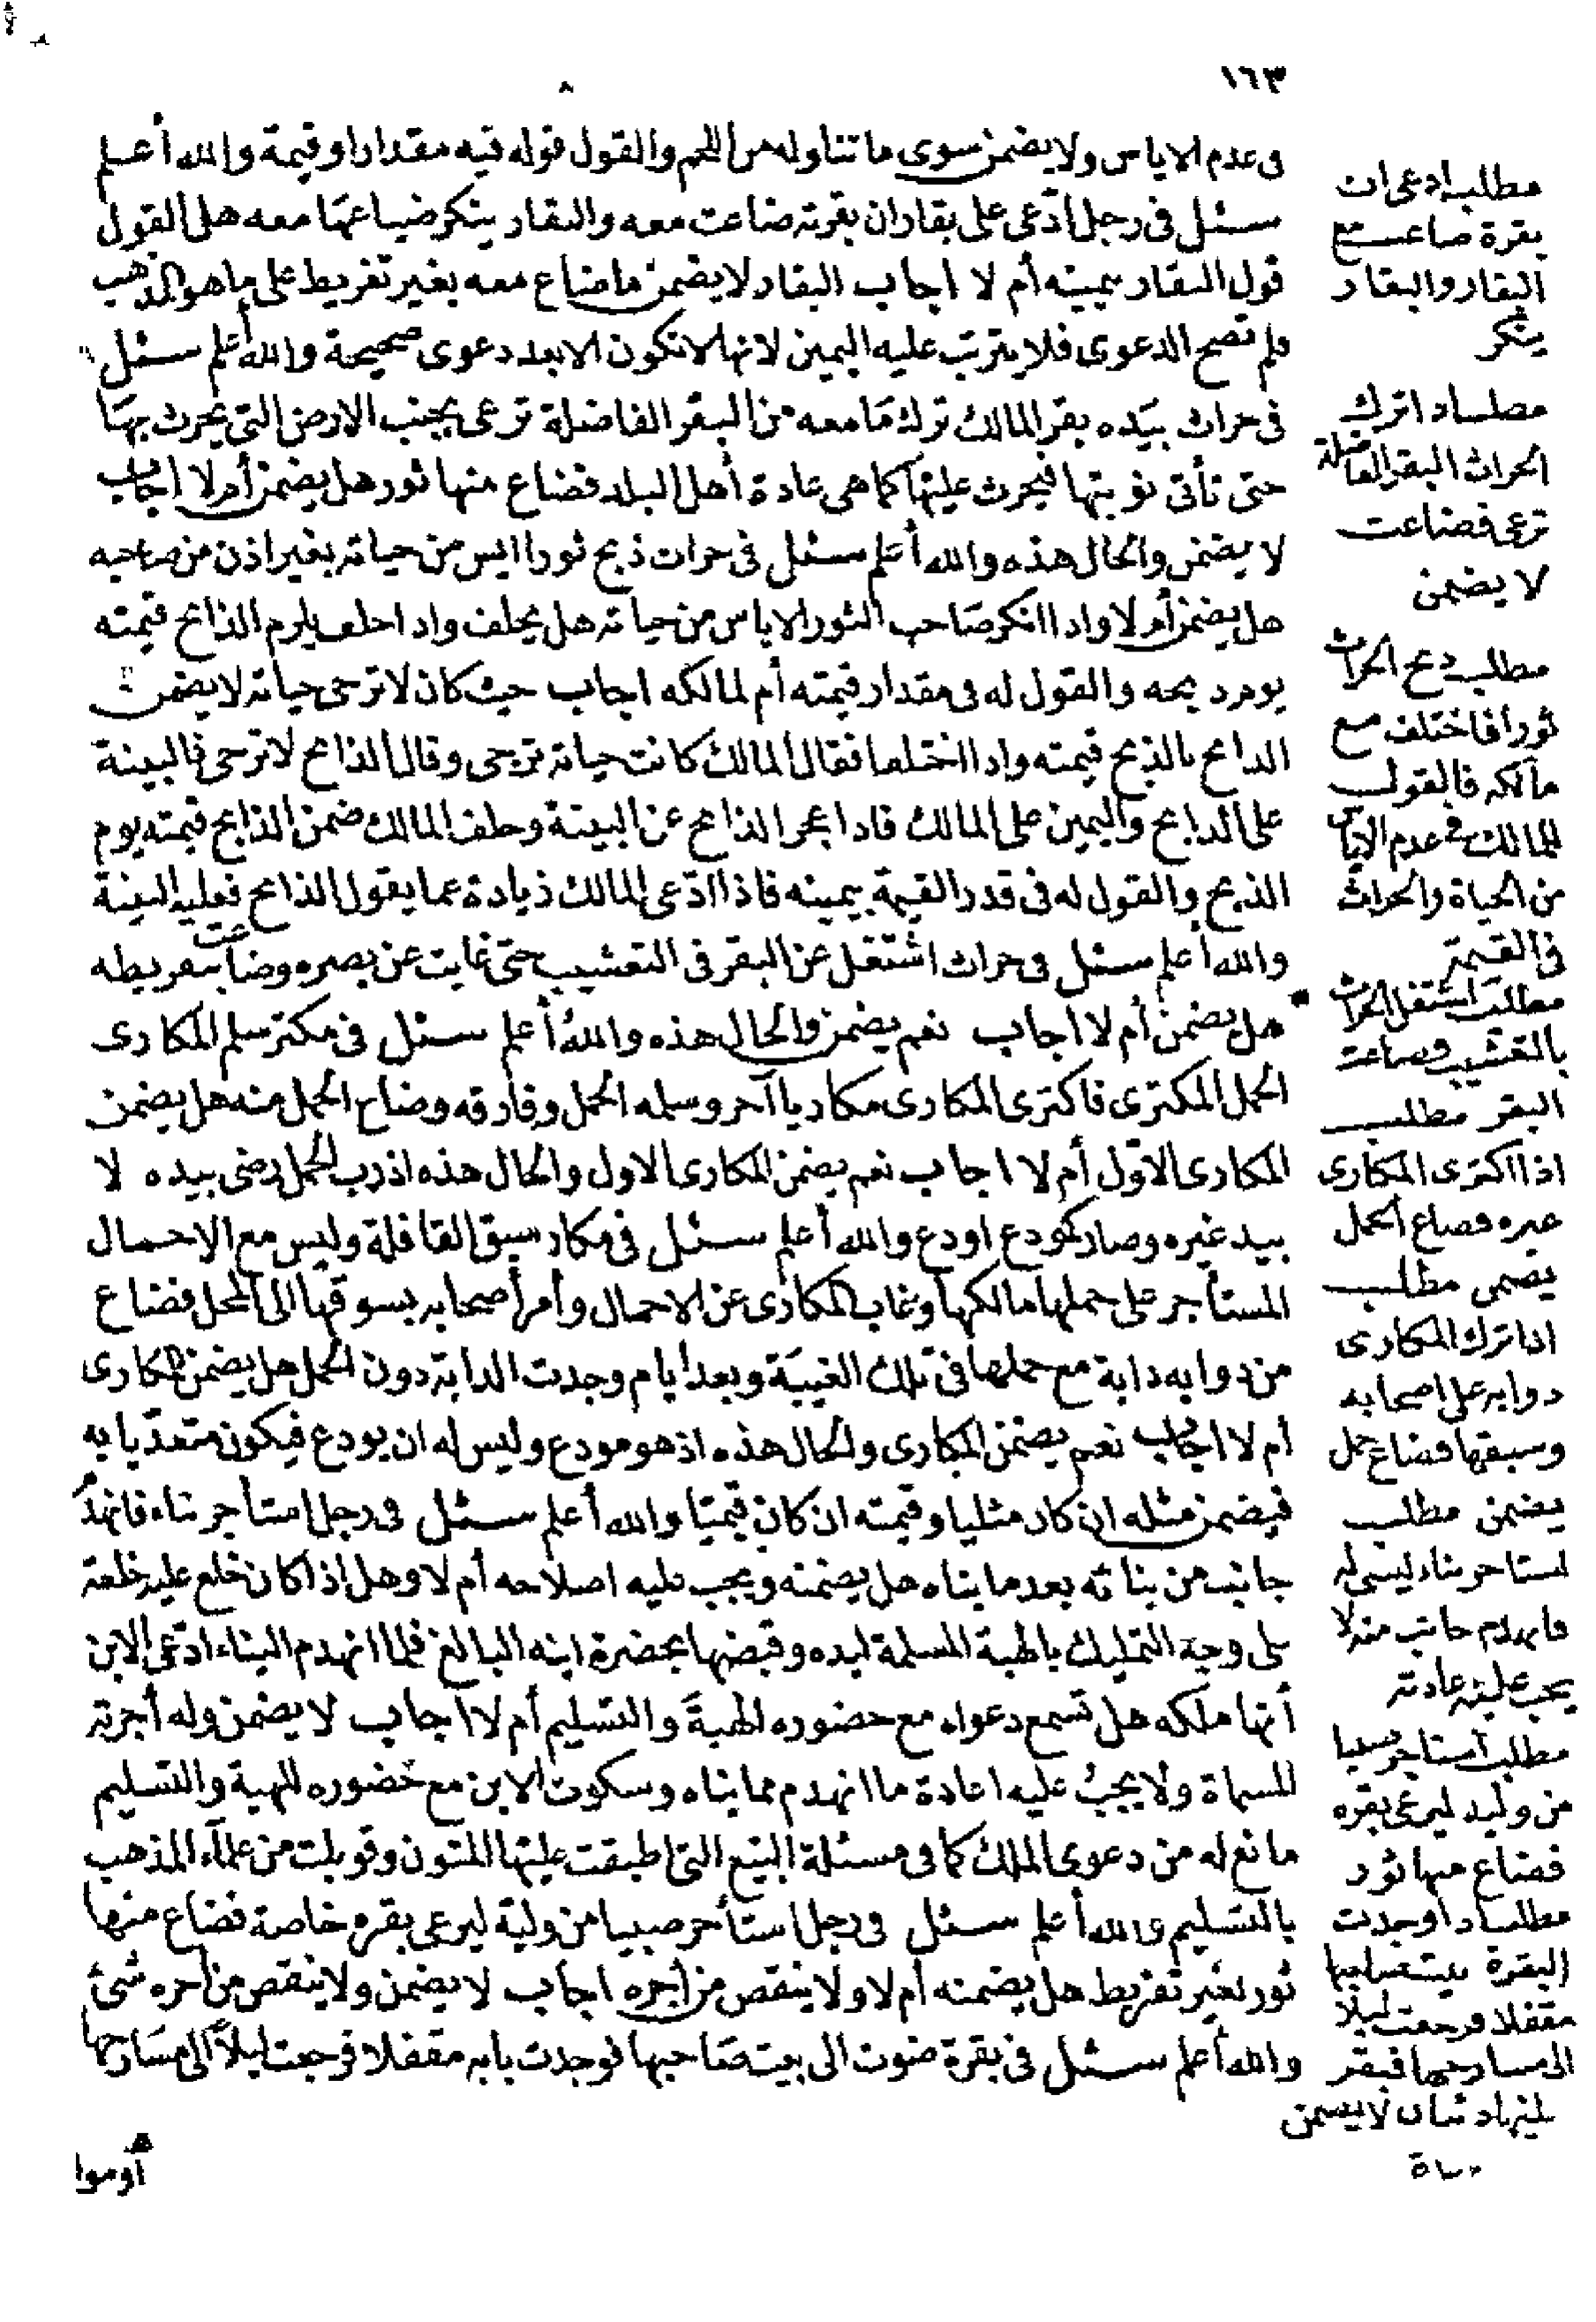 ١٦٣
فى عدم الاياس ولا يضمن سوى ما تناوله من اللحم والقول قوله فيه مقدارا وقيمة والله أعلم
سئل فى رجل ادّعى على بقار ان بقرته ضاعت معه والبقار ينكر ضياعها معه هل القول
قول البقار بيمينه أم لا اجاب البقار لا يضمن ما ضاع معه بغير تفريط على ما هو المذهب
فلم تصح الدعوى فلا يترتب عليه اليمين لانها لا تكون الا بعد دعوى صحيحة والله أعلم سئل
فى حراث بيده بقر المالك ترك ما معه من البقر الفاضلة ترعى بجنب الارض التى يحرث بها
حتى تأتى نوبتها فيحرث عليها كما هى عادة أهل البلد فضاع منها ثور هل يضمن أم لا اجاب
لا يضمن والحال هذه والله أعلم سئل فى حراث ذبح ثورا ايس من حياته بغير اذن من صاحبه
هل يضمن أم لا واذا انكر صاحب الثور الاياس من حياته هل يحلف واذا حلف يلزم الذابح قيمته
يوم ذبحه والقول له فى مقدار قيمته أم لمالكه اجاب حيث كان لا ترجى حياته لا يضمن
الذابح بالذبح قيمته واذا اختلفا فقال المالك كانت حياته ترجى وقال الذابح لا ترجى فالبينة
على الذابح واليمين على المالك فاذا عجز الذابح عن البينة وحلف المالك ضمن الذابح قيمته يوم
الذبح والقول له فى قدر القيمة بيمينه فاذا ادّعى المالك زيادة عما يقول الذابح فعليه البينة
والله أعلم سئل فى حراث اشتغل عن البقر فى التعشيب حتى غابت عن بصره وضاعت بتفريطه
هل يضمن أم لا اجاب نعم يضمن والحال هذه والله أعلم سئل فى مكتر سلم المكارى
الحمل المكترى فاكترى المكارى مكاريا آخر وسلمه الحمل وفارقه وضاع الحمل منه هل يضمن
المكارى الاوّل أم لا اجاب نعم يضمن المكارى الاول والحال هذه اذ رب الحمل رضى بيده لا
بيد غيره وصار كمودع اودع والله أعلم سئل فى مكار سبق القافلة وليس مع الاحمال
المستأجر على حملها مالكها وغاب المكارى عن الاحمال وأمر أصحابه بسوقها الى المحل فضاع
من دوابه دابة مع حملها فى تلك الغيبة وبعد أيام وجدت الدابة دون الحمل هل يضمن المكارى
أم لا اجاب نعم يضمن المكارى والحال هذه اذ هو مودع وليس له ان يودع فيكون متعدّيا به
فيضمن مثله ان كان مثليا وقيمته ان كان قيميّا والله أعلم سئل فى رجل استأجر بناء فانهدم
جانب من بنائه بعد ما بناه هل يضمنه ويجب عليه اصلاحه أم لا وهل اذا كان خلع عليه خلعة
على وجه التمليك بالهبة المسلمة ليده وقبضها بحضرة ابنه البالغ فلما انهدم البناء ادّعى الابن
أنها ملكه هل تسمع دعواه مع حضوره الهبة والتسليم أم لا اجاب لا يضمن وله أجرته
المسماة ولا يجب عليه اعادة ما انهدم مما بناه وسكوت الابن مع حضوره للهبة والتسليم
مانع له من دعوى الملك كما فى مسئلة البيع التى اطبقت عليها المتون وقوبلت من علماء المذهب
بالتسليم والله أعلم سئل فى رجل استأجر صبيا من وليه ليرعى بقره خاصة فضاع منها
ثور بغير تفريط هل يضمنه أم لا ولا ينقص من أجره اجاب لا يضمن ولا ينقص من أجره شئ
والله أعلم سئل فى بقرة ضوت الى بيت صاحبها فوجدت بابه مقفلا فرجعت ليلا الى مسارحها
أوموا
مطلب ادعى ان
بقرة ضاعت مع
البقار والبقار
ينكر
مطلب اذا ترك
الحراث البقر الفاضلة
ترعى فضاعت
لا يضمن
مطلب ذبح الحراث
ثورا فاختلف مع
مالكه فالقول
للمالك فى عدم الاياس
من الحياة والحراث
فى القيمة
مطلب اشتغل الحراث
بالتعشيب فضاعت
البقر مطلب
اذا اكترى المكارى
غيره فضاع الحمل
يضمن مطلب
اذا ترك المكارى
دوابه على اصحابه
وسبقها فضاع حمل
يضمن مطلب
استاجر بناء ليبنى له
فانهدم جانب منه لا
يجب عليه اعادته
مطلب استاجر صبيا
من وليه ليرعى بقره
فضاع منها ثور
مطلب اذا وجدت
البقرة بيت صاحبها
مقفلا فرجعت ليلا
الى مسارحها فبقر
لا يضمن